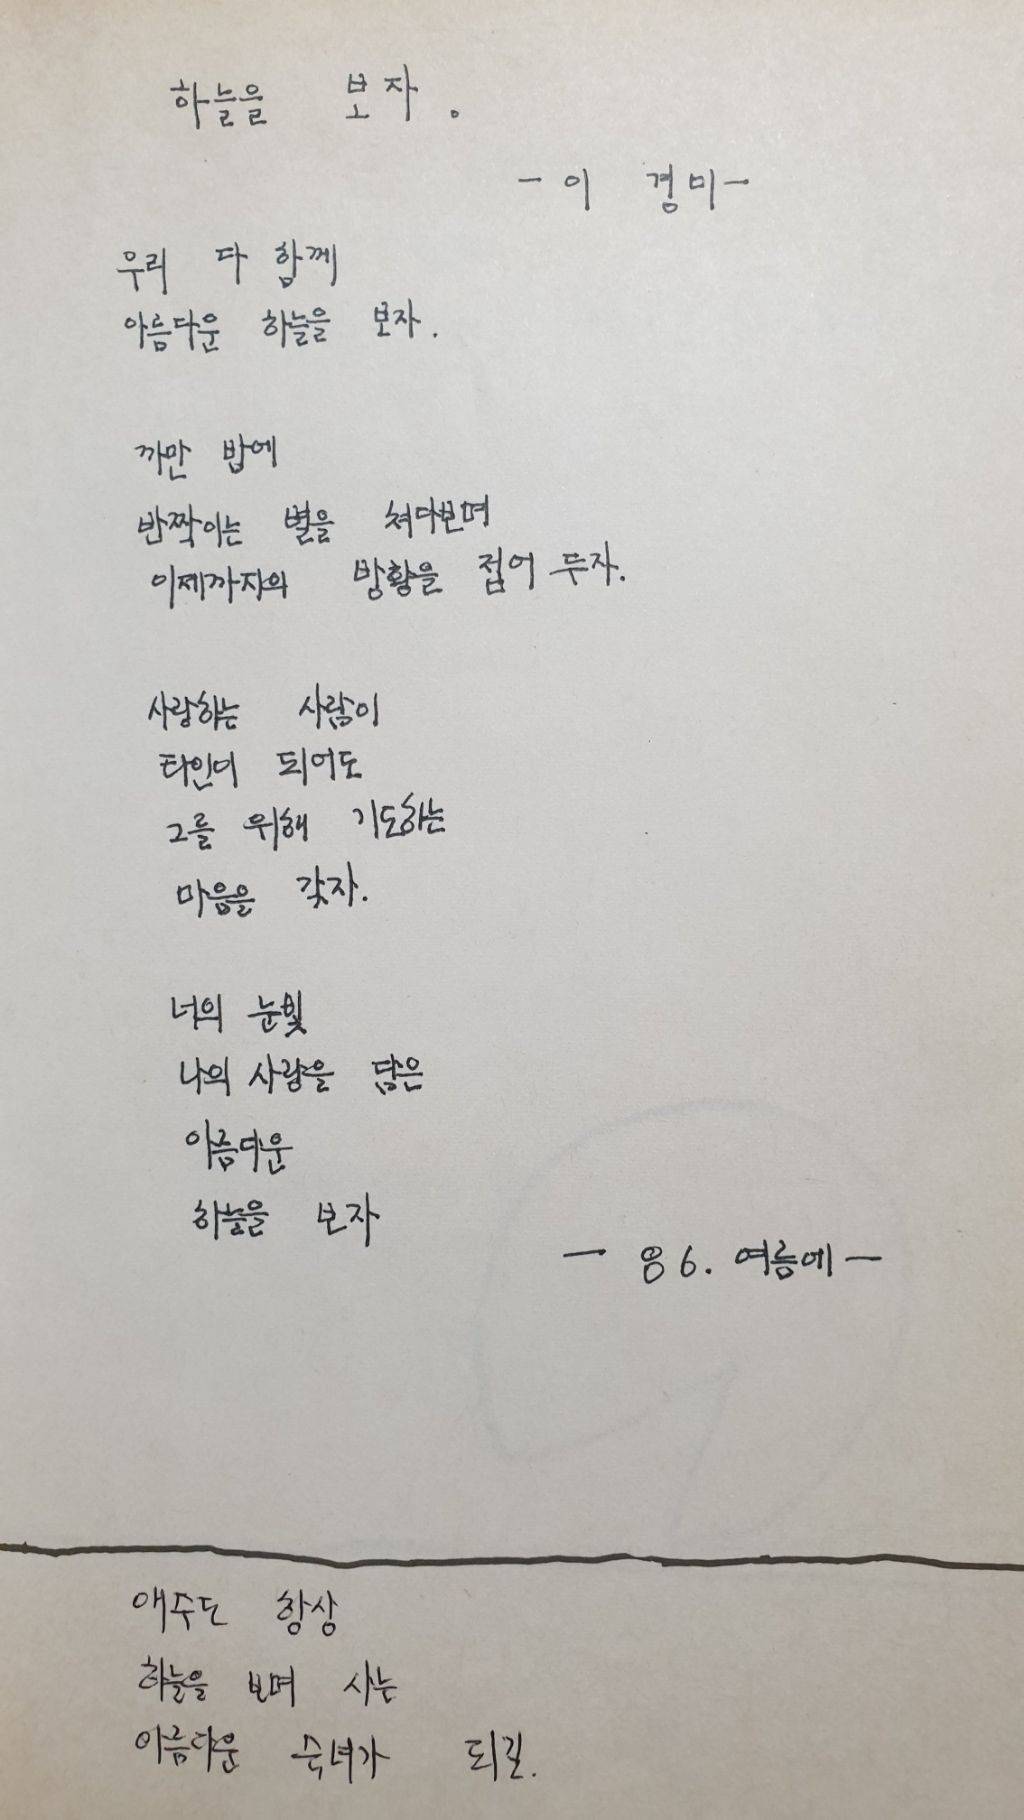 하늘을 보자.
- 이 경미 -
우리 다 함께
아름다운 하늘을 보자.
까만 밤에
반짝이는 별을 쳐다보며
이제까지의 방황을 접어 두자.
사랑하는 사람이
타인이 되어도
그를 위해 기도하는
마음을 갖자.
너의 눈빛
나의 사랑을 닮은
아름다운
하늘을 보자
- 86. 여름에 -
애수도 항상
하늘을 보며 사는
아름다운 숙녀가 되길.